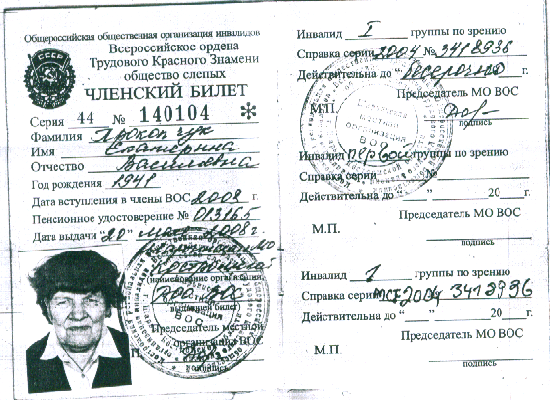 Общероссийская общественная организация инвалидов
Всероссийское ордена
Трудового Красного Знамени
общество слепых
ЧЛЕНСКИЙ БИЛЕТ
Серия 44 № 140104 *
Фамилия Прокопчук
Имя Екатерина
Отчество Васильевна
Год рождения 1941
Дата вступления в члены ВОС 2002 г.
Пенсионное удостоверение № 013165
Дата выдачи "20" 2008 г.
Костромской
(наименование организации,
выдавшей билет)
Председатель местной
организации ВОС
М.П.
Инвалид I группы по зрению
Справка серии 2004 № 3418936
Действительна до "бессрочно г.
Председатель МО ВОС
М.П.
подпись
Инвалид первой группы по зрению
Справка серии №
Действительна до " " 20 г.
Председатель МО ВОС
М.П.
подпись
Инвалид 1 группы по зрению
Справка серии МСЭ 2004 3418936
Действительна до " " 20 г.
Председатель МО ВОС
М.П.
подпись